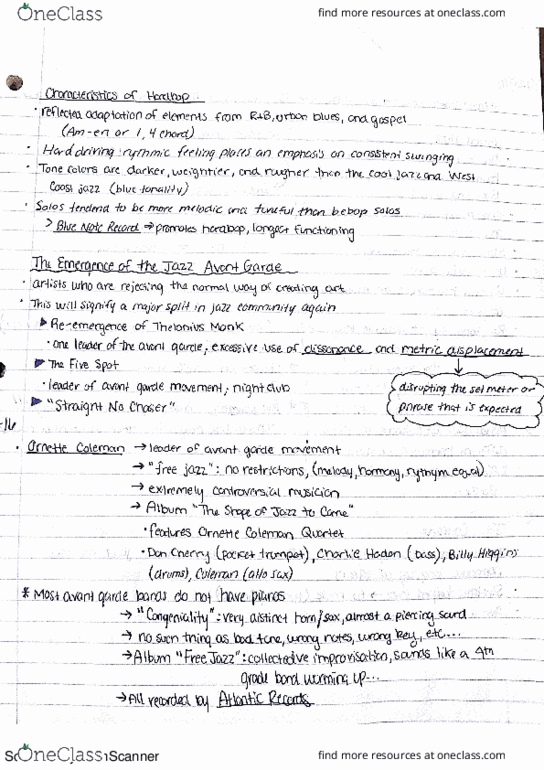 OneClass
find more resources at oneclass.com
Characteristics of Hardbop
· reflected adaptation of elements from R+B, urban blues, and gospel
(Am-en or 1, 4 chord)
· Hard driving rythmic feeling places an emphasis on consistent swinging
· Tone colors are darker, weightier, and rougher then the cool jazz and West
Coast jazz (blue tonality)
· Solos tend to be more melodic and tuneful than bebop solos
> Blue Note Record → promotes hardbop, longest functioning
The Emergence of the Jazz Avant Garde
· artists who are rejecting the normal way of creating art
· This will signify a major split in jazz community again
▶ Re-emergence of Thelonius Monk
· one leader of the avant garde; excessive use of dissonance and metric displacement
▶ The Five Spot
· leader of avant garde movement; nightclub
▶ "Straight No Chaser"
disrupting the set meter or
phrase that is expected
-16
· Ornette Coleman → leader of avant garde movement
→ "free jazz": no restrictions, (melody, harmony, rythym equal)
→ extremely controversial musician
→ Album "The Shape of Jazz to Come"
· features Ornette Coleman Quartet
· Don Cherry (pocket trumpet), Charlie Haden (bass), Billy Higgins
(drums), Coleman (alto sax)
* Most avant garde bands do not have pianos
→ "Congeniality": very distinct horn/sax, almost a piercing sound
→ no such thing as bad tone, wrong notes, wrong key, etc...
→ Album "Free Jazz": collectedive improvisation, sounds like a 4th
grade band warming up...
→ All recorded by Atlantic Records
OneClass
Scanner
find more resources at oneclass.com